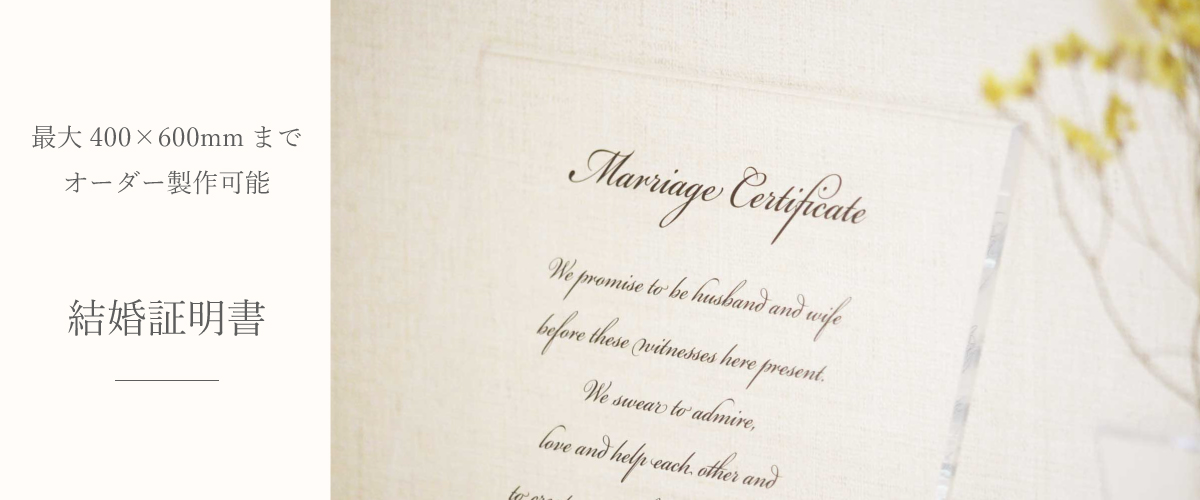 最大 400×600mm まで
オーダー製作可能
結婚証明書
Marriage Certificate
We promise to be husband and wife
before these witnesses here present.
We swear to admire,
love and help each other and
to